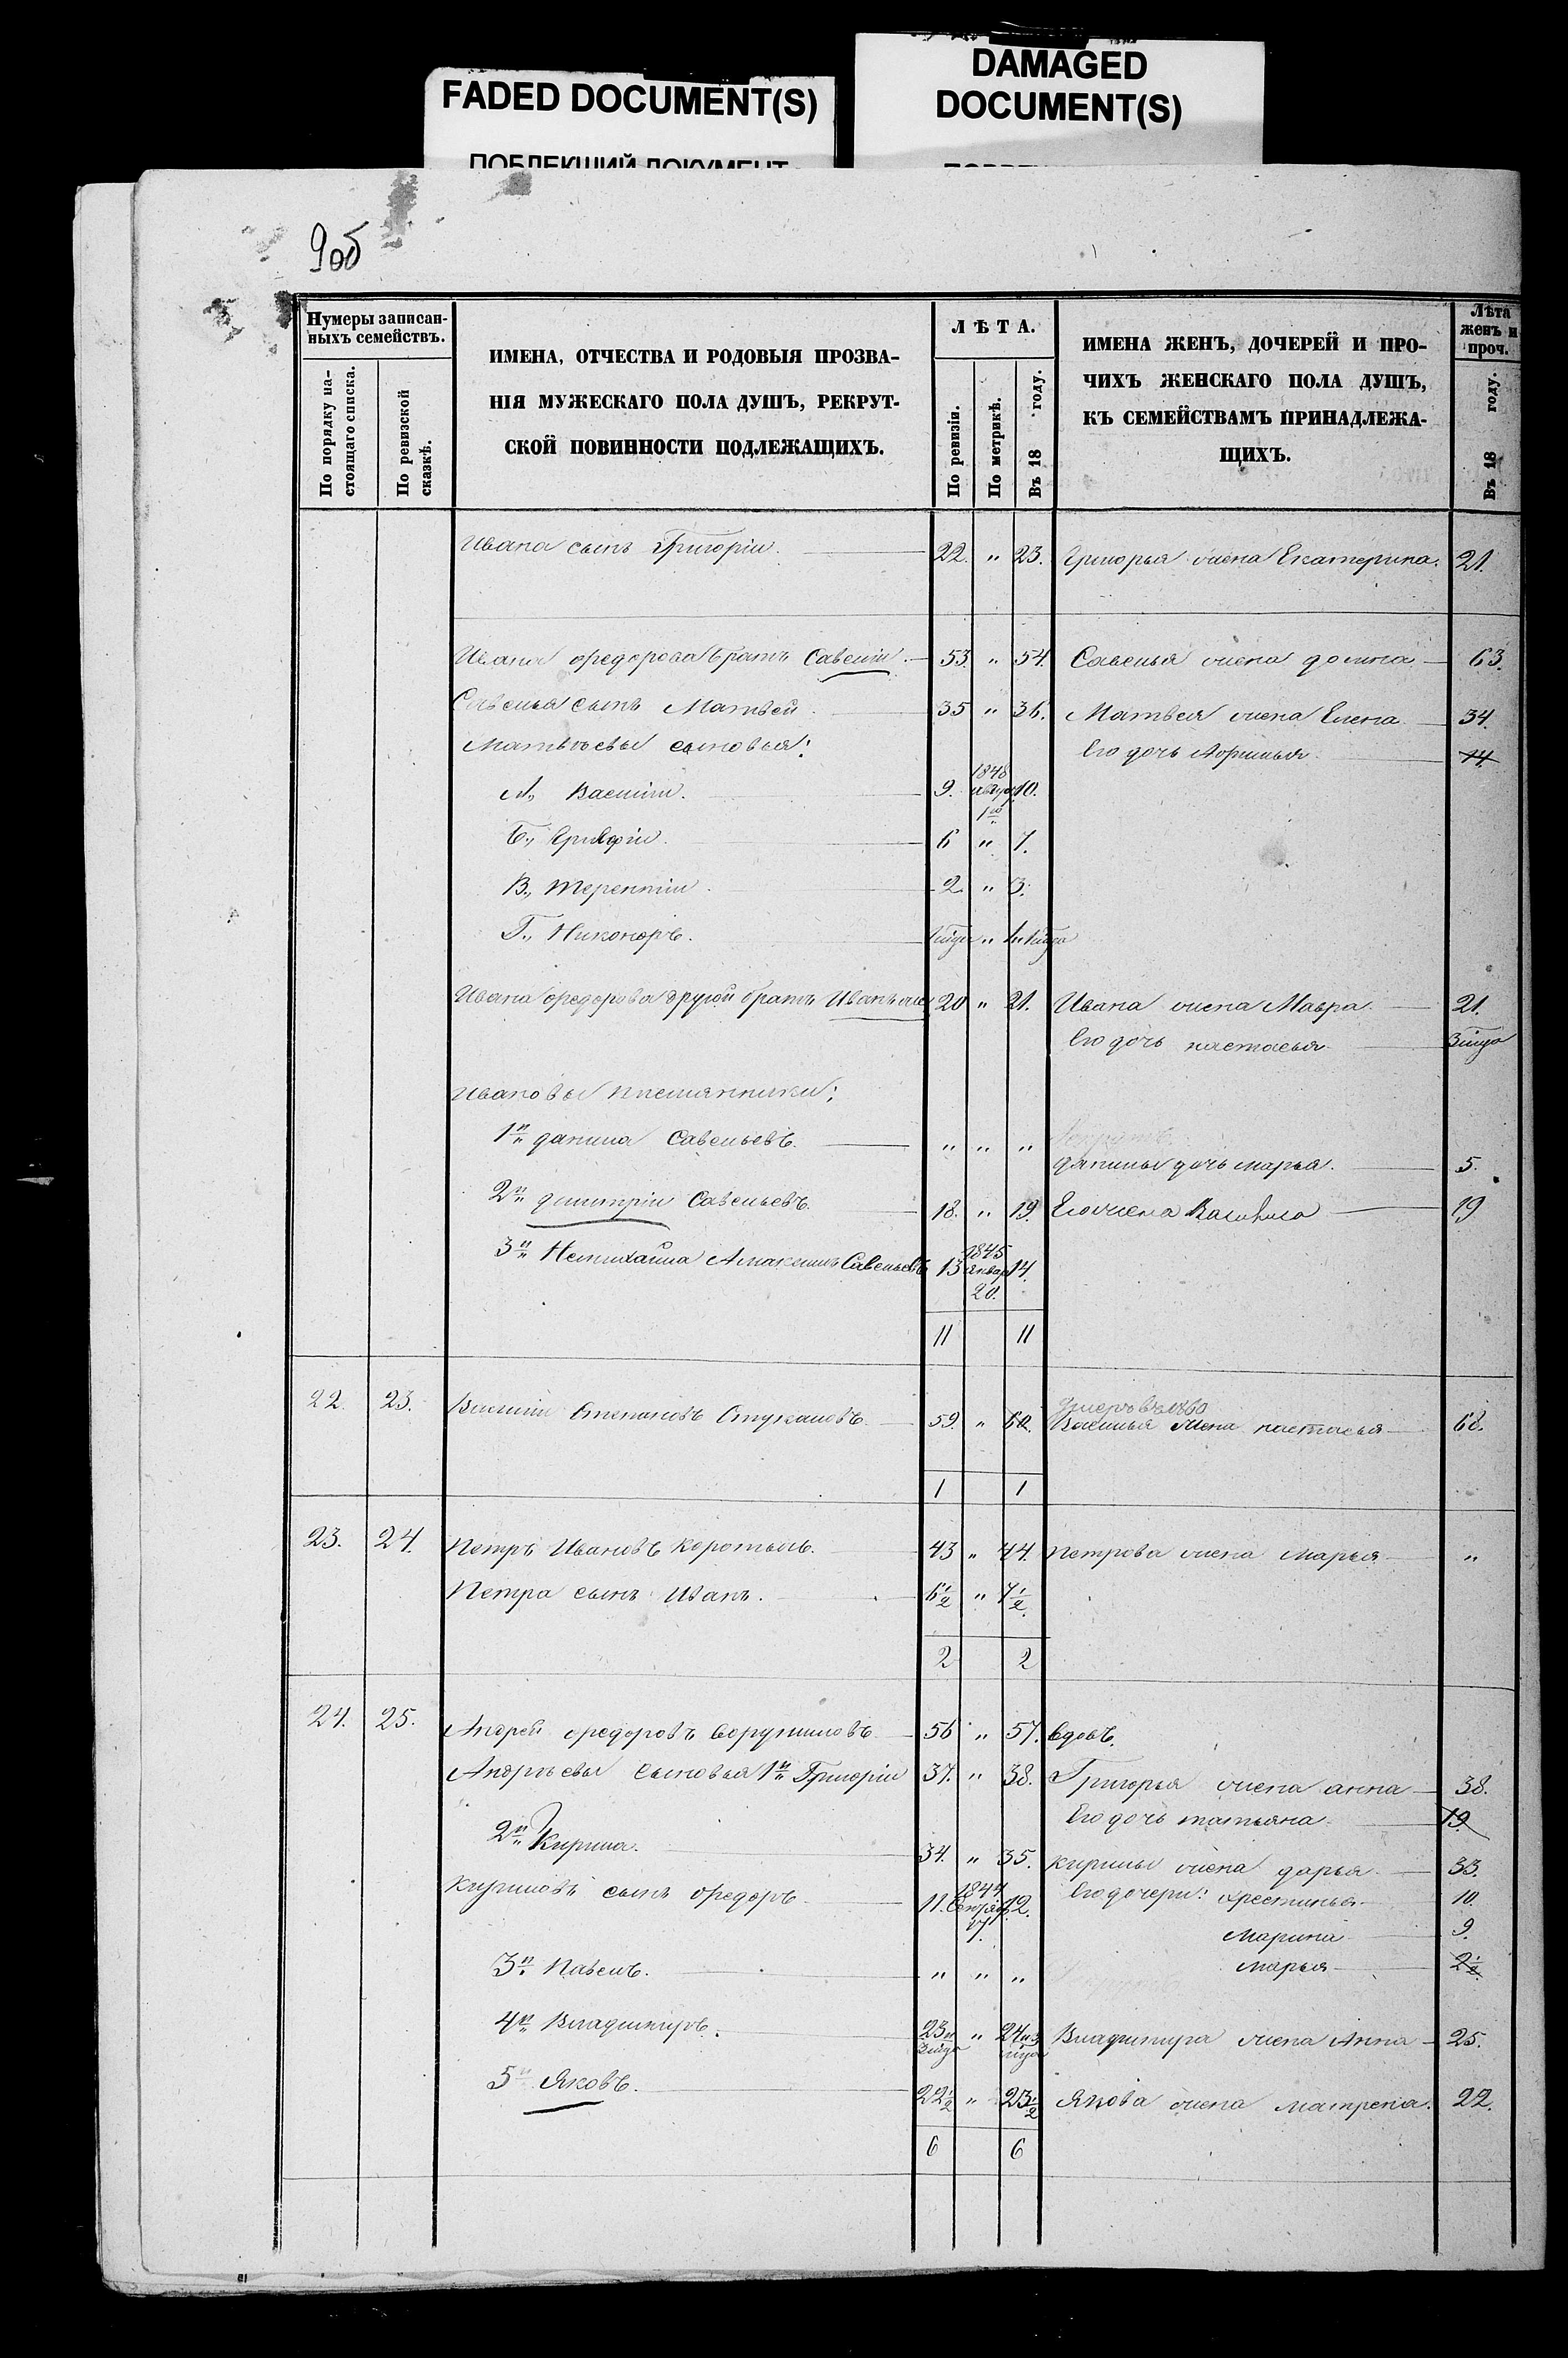 FADED DOCUMENT(S)
ПОБЛЕКШИЙ ДОКУМЕНТ
DAMAGED
DOCUMENT(S)
9об
Нумеры записан-
ныхъ семействъ.
По порядку на-
стоящаго списка.
По ревизской
сказкѣ.
ИМЕНА, ОТЧЕСТВА И РОДОВЫЯ ПРОЗВА-
НІЯ МУЖЕСКАГО ПОЛА ДУШЪ, РЕКРУТ-
СКОЙ ПОВИННОСТИ ПОДЛЕЖАЩИХЪ.
ЛѢТА.
По ревизіи.
По метрикѣ.
Въ 18 году.
ИМЕНА ЖЕНЪ, ДОЧЕРЕЙ И ПРО-
ЧИХЪ ЖЕНСКАГО ПОЛА ДУШЪ,
КЪ СЕМЕЙСТВАМЪ ПРИНАДЛЕЖА-
ЩИХЪ.
Лѣта
женъ и
проч.
Въ 18 году.
Ивана сынъ Григоріи. 22. " 23. Григорья жена Екатерина. 21.
Ивана Федорова братъ Савелій. 53. " 54. Савелья жена домна 63.
Савелья сынъ Матвей 35 " 36. Матвея жена Елена 34.
Матвѣевы сыновья: Его дочь 14.
А., Василій. 9. 1848 10.
Б., 6 " 7.
В., Терентій. 2. " 3.
Г., Никоноръ. "
Ивана Федорова другой братъ Иванъ 20 " 21. Ивана жена Мавра. 21.
Его дочь настасья
Ивановы племянники:
1й данила Савельевъ. " " "
данилы дочь марья. 5.
2й димитрій Савельевъ. 18. " 19. Его жена 19
3й Савельевъ 13 1845 Январ 20. 14.
11 11
22. 23. Василій Степановъ 59. " 60. Умеръ въ 1860
Василья жена настасья 68.
1 1
23. 24. Петръ Ивановъ 43 " 44. петрова жена марья "
Петра сынъ Иванъ. 6½ " 7½.
2 2
24. 25. Андрей Федоровъ 56 " 57. вдовъ.
Андрѣевы сыновья 1й Григорій 37. " 38. Григорья жена анна 38.
Его дочь татьяна 19.
2й Кирила. 34. " 35. кирилы жена дарья 33.
кириловъ сынъ Федоръ 11. 1847 12. Его дочери: Хрестинья 10.
Марина 9.
3й Павелъ. " " " марья 2½
4й Владимиръ. 23 " 24 Владимира жена Анна 25.
5й Яковъ. 22½ " 23½ Якова жена матрена. 22.
6 6